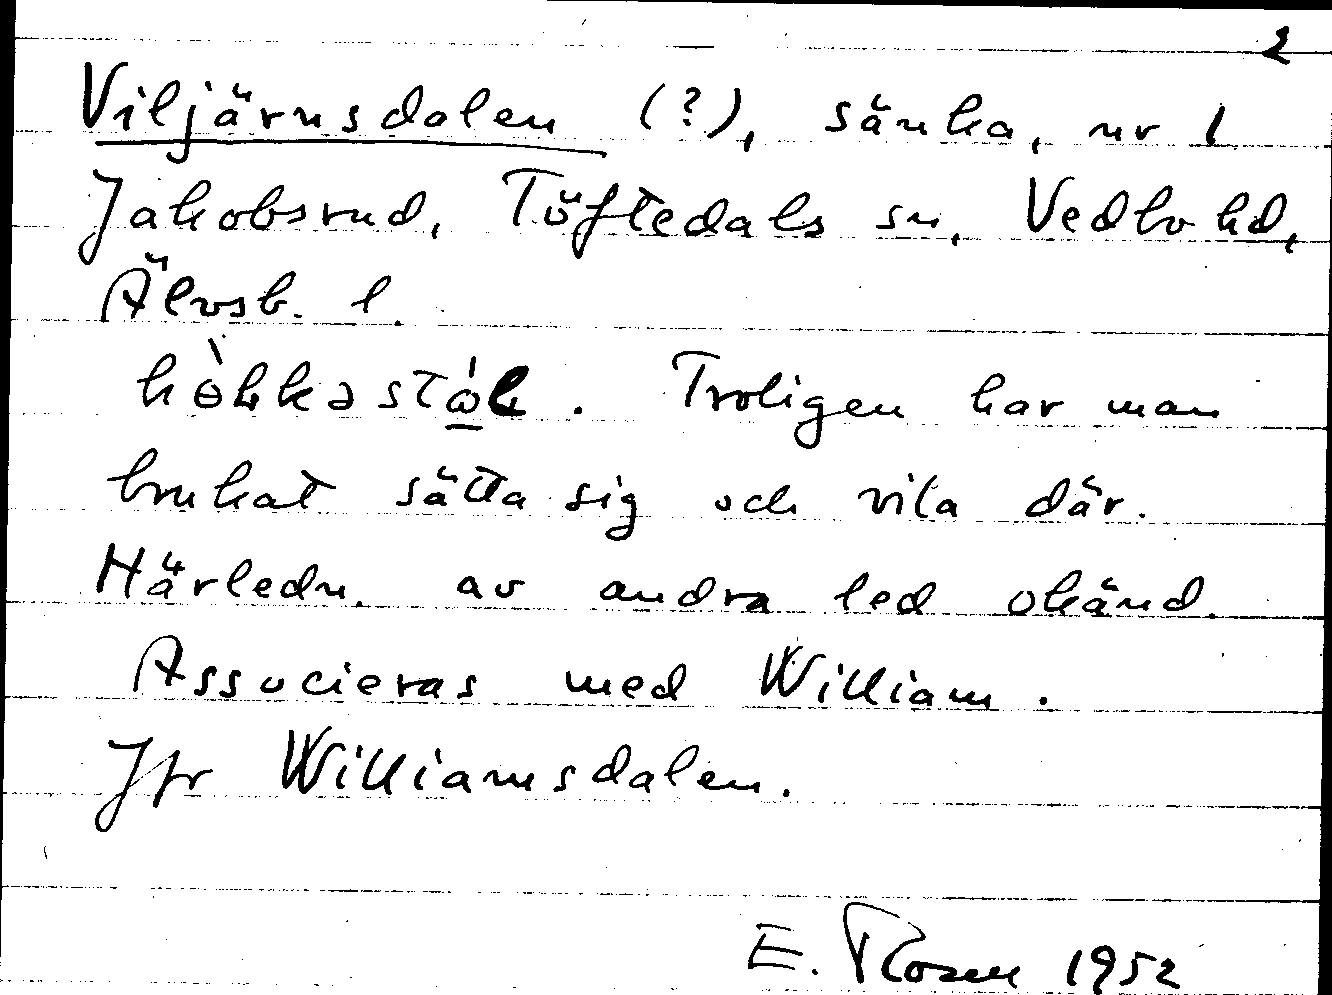 2
Viljärnsdalen (?), sänka, nr 1
Jakobsrud, Töftedals sn, Vedbo hd,
Älvsb. l.
hòkkəstól. Troligen har man
brukat sätta sig och vila där.
Härledn. av andra led okänd.
Associeras med William.
Jfr Williamsdalen.
E. Rosén 1952